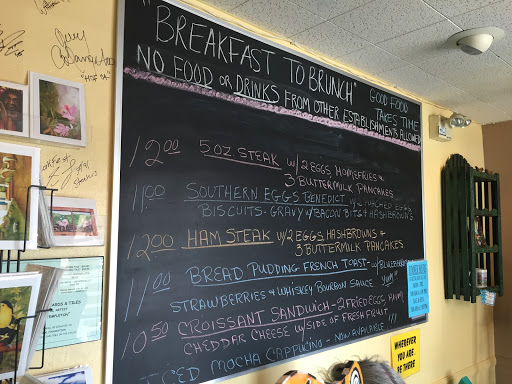 "BREAKFAST TO BRUNCH"
GOOD FOOD
TAKES TIME
NO FOOD OR DRINKS FROM OTHER ESTABLISHMENTS ALLOWED
12.00 5OZ. STEAK W/2 EGGS, HOMEFRIES &
3 BUTTERMILK PANCAKES
11.00 SOUTHERN EGGS BENEDICT W/2 POACHED EGGS
BISCUITS - GRAVY W/BACON BITS & HASHBROWNS
12.00 HAM STEAK W/2 EGGS, HASHBROWNS &
3 BUTTERMILK PANCAKES
BREAD PUDDING FRENCH TOAST - W/BLUEBERRIES
STRAWBERRIES & WHISKEY BOURBON SAUCE "YUM"
10.50 CROISSANT SANDWICH - 2 FRIED EGGS, HAM,
CHEDDAR CHEESE W/SIDE OF FRESH FRUIT
ICED MOCHA CAPPUCINO - NOW AVAILABLE !!!
WHEREVER
YOU ARE,
BE THERE